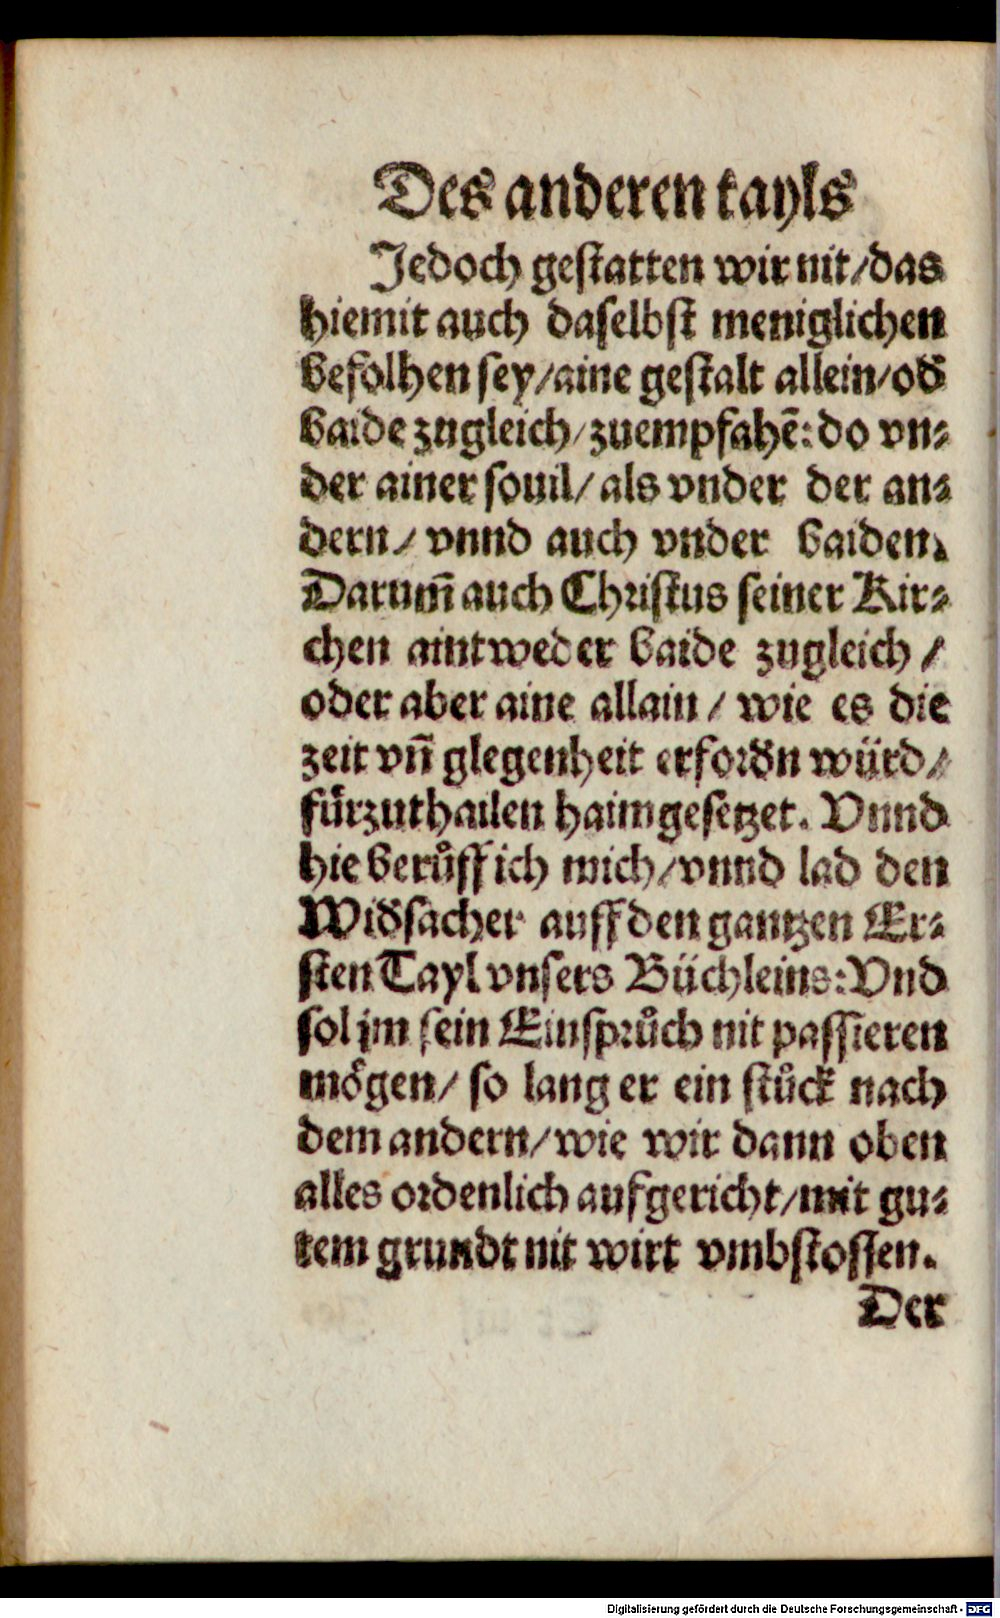 Des anderen tayls
Jedoch gestatten wir nit/das
hiemit auch daselbst meniglichen
befolhen sey/aine gestalt allein/od̄
baide zugleich/zuempfahē: do vn⸗
der ainer souil/als vnder der an⸗
dern/ vnnd auch vnder baiden.
Darum̄ auch Christus seiner Kir⸗
chen aintweder baide zugleich /
oder aber aine allain / wie es die
zeit vn̄ glegenheit erford̄n würd/
fürzuthailen haimgesetzet. Vnnd
hie berůff ich mich/vnnd lad den
Wid̄sacher auff den gantzen Er⸗
sten Tayl vnsers Büchleins: Vnd
sol jm sein Einsprůch nit passieren
mögen/ so lang er ein stůck nach
dem andern/wie wir dann oben
alles ordenlich aufgericht/mit gu⸗
tem grundt nit wirt vmbstossen.
Der
Digitalisierung gefördert durch die Deutsche Forschungsgemeinschaft - DFG